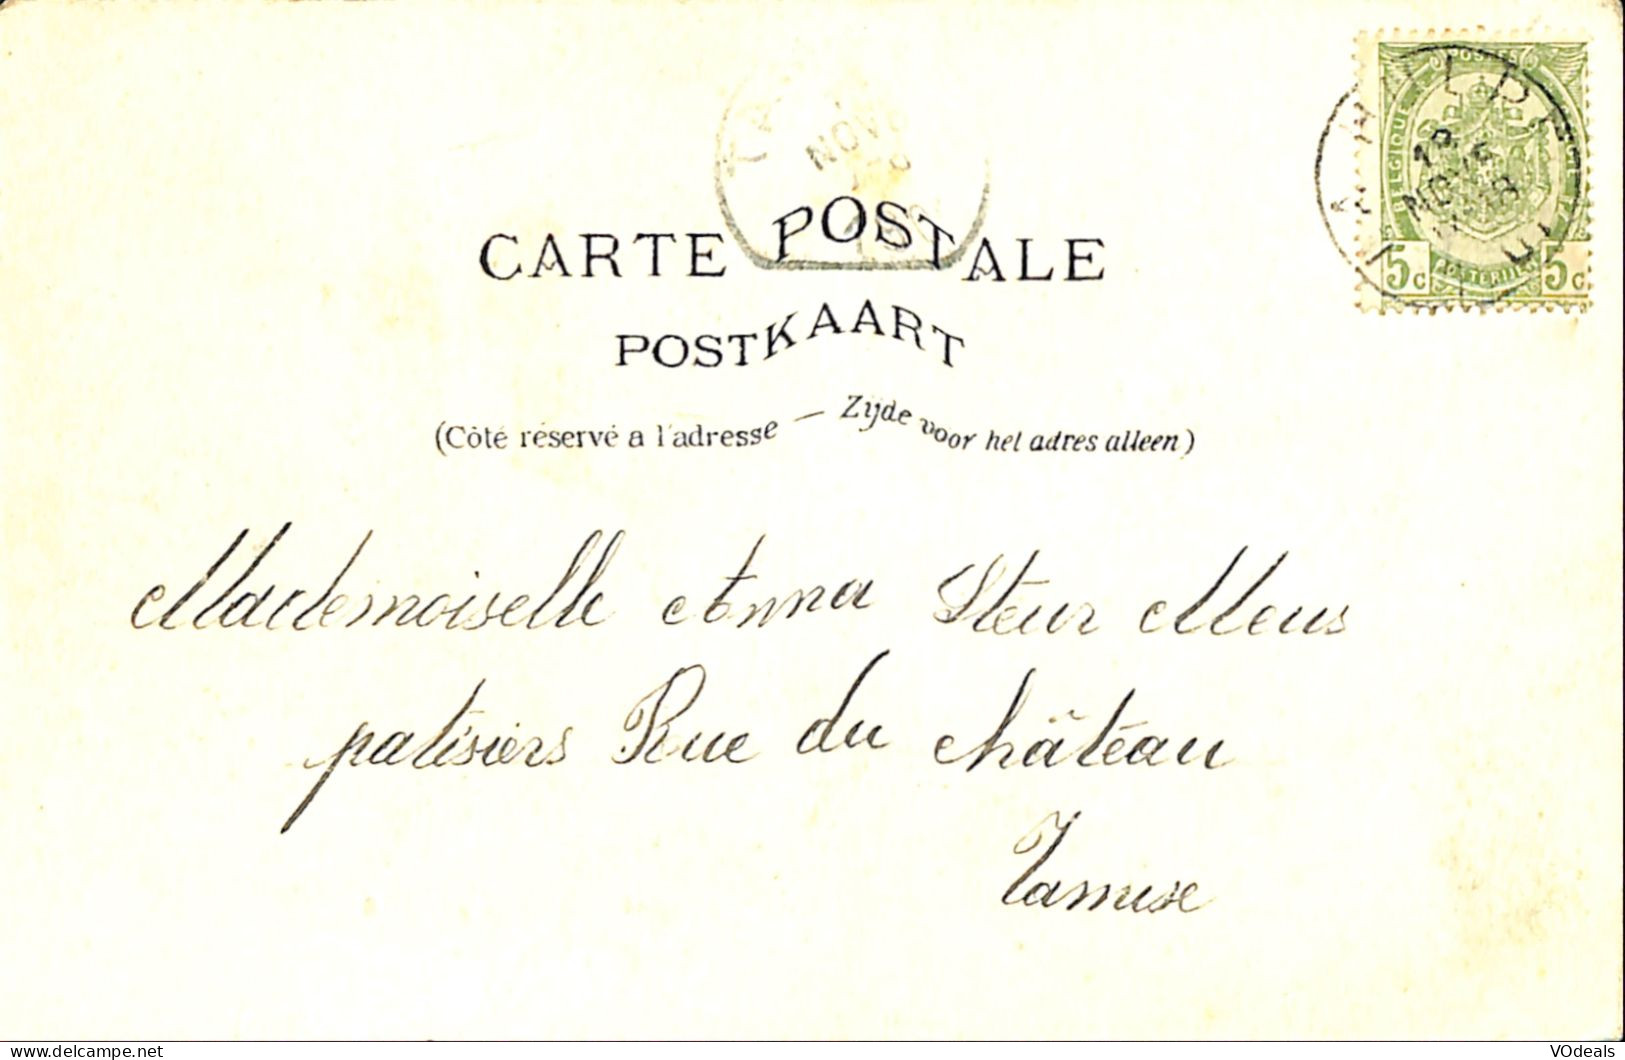 POSTES
BELGIQUE
5c POSTERIJEN 5c
NOV
CARTE POSTALE
POSTKAART
(Côté réservé a l'adresse — Zijde voor het adres alleen)
Mademoiselle Anna Steur Meus
patisiers Rue du château
Tamise
VOdeals